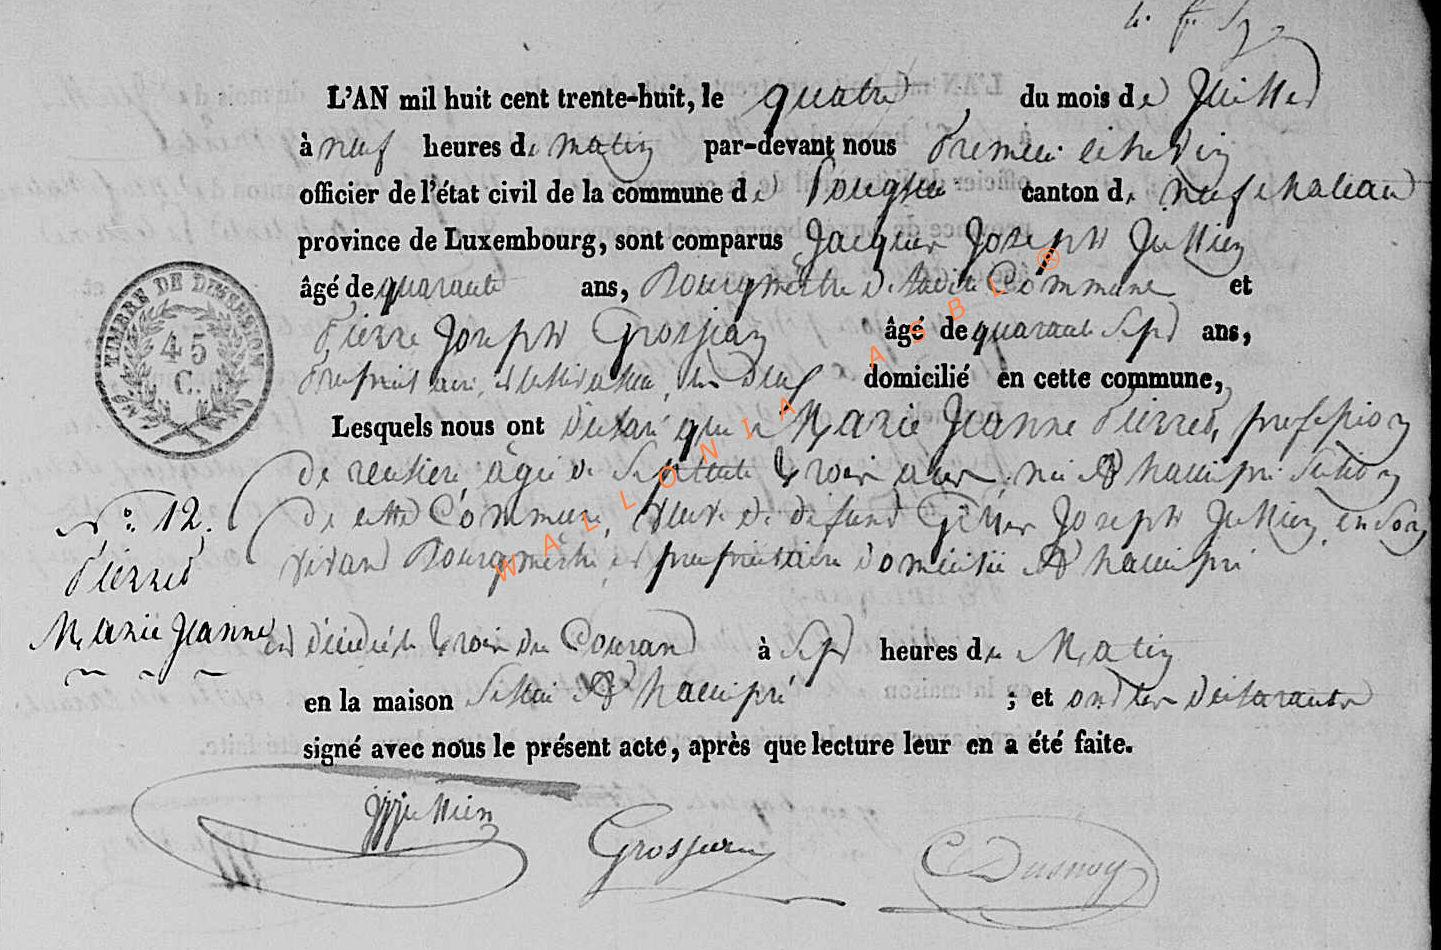 L'AN mil huit cent trente-huit, le quatre du mois de Juillet
à neuf heures du matin par-devant nous Premier échevin
officier de l'état civil de la commune de canton de neufchateau
province de Luxembourg, sont comparus Jacques Joseph Jullien
âgé de quarante ans, Bourgmestre de ladite Commune et
Pierre Joseph Grosjean âgé de quarante sept ans,
propriétaire, et domicilié en cette commune,
Lesquels nous ont déclaré que Marie Jeanne Pierret, profession
de rentière, âgée de septante trois ans, née à hamipré section
de cette Commune, veuve de défunt Joseph Jullien, en son
vivant Bourgmestre et propriétaire domicilié à hamipré
N°. 12.
Pierret
Marie Jeanne
est décédée le trois du Courant à sept heures du Matin
en la maison située à hamipré ; et ont les déclarants
signé avec nous le présent acte, après que lecture leur en a été faite.
TIMBRE DE DIMENSION
45
C.
JJJullien Grosjean C Dusnoy
WALLONIA ASBL ®